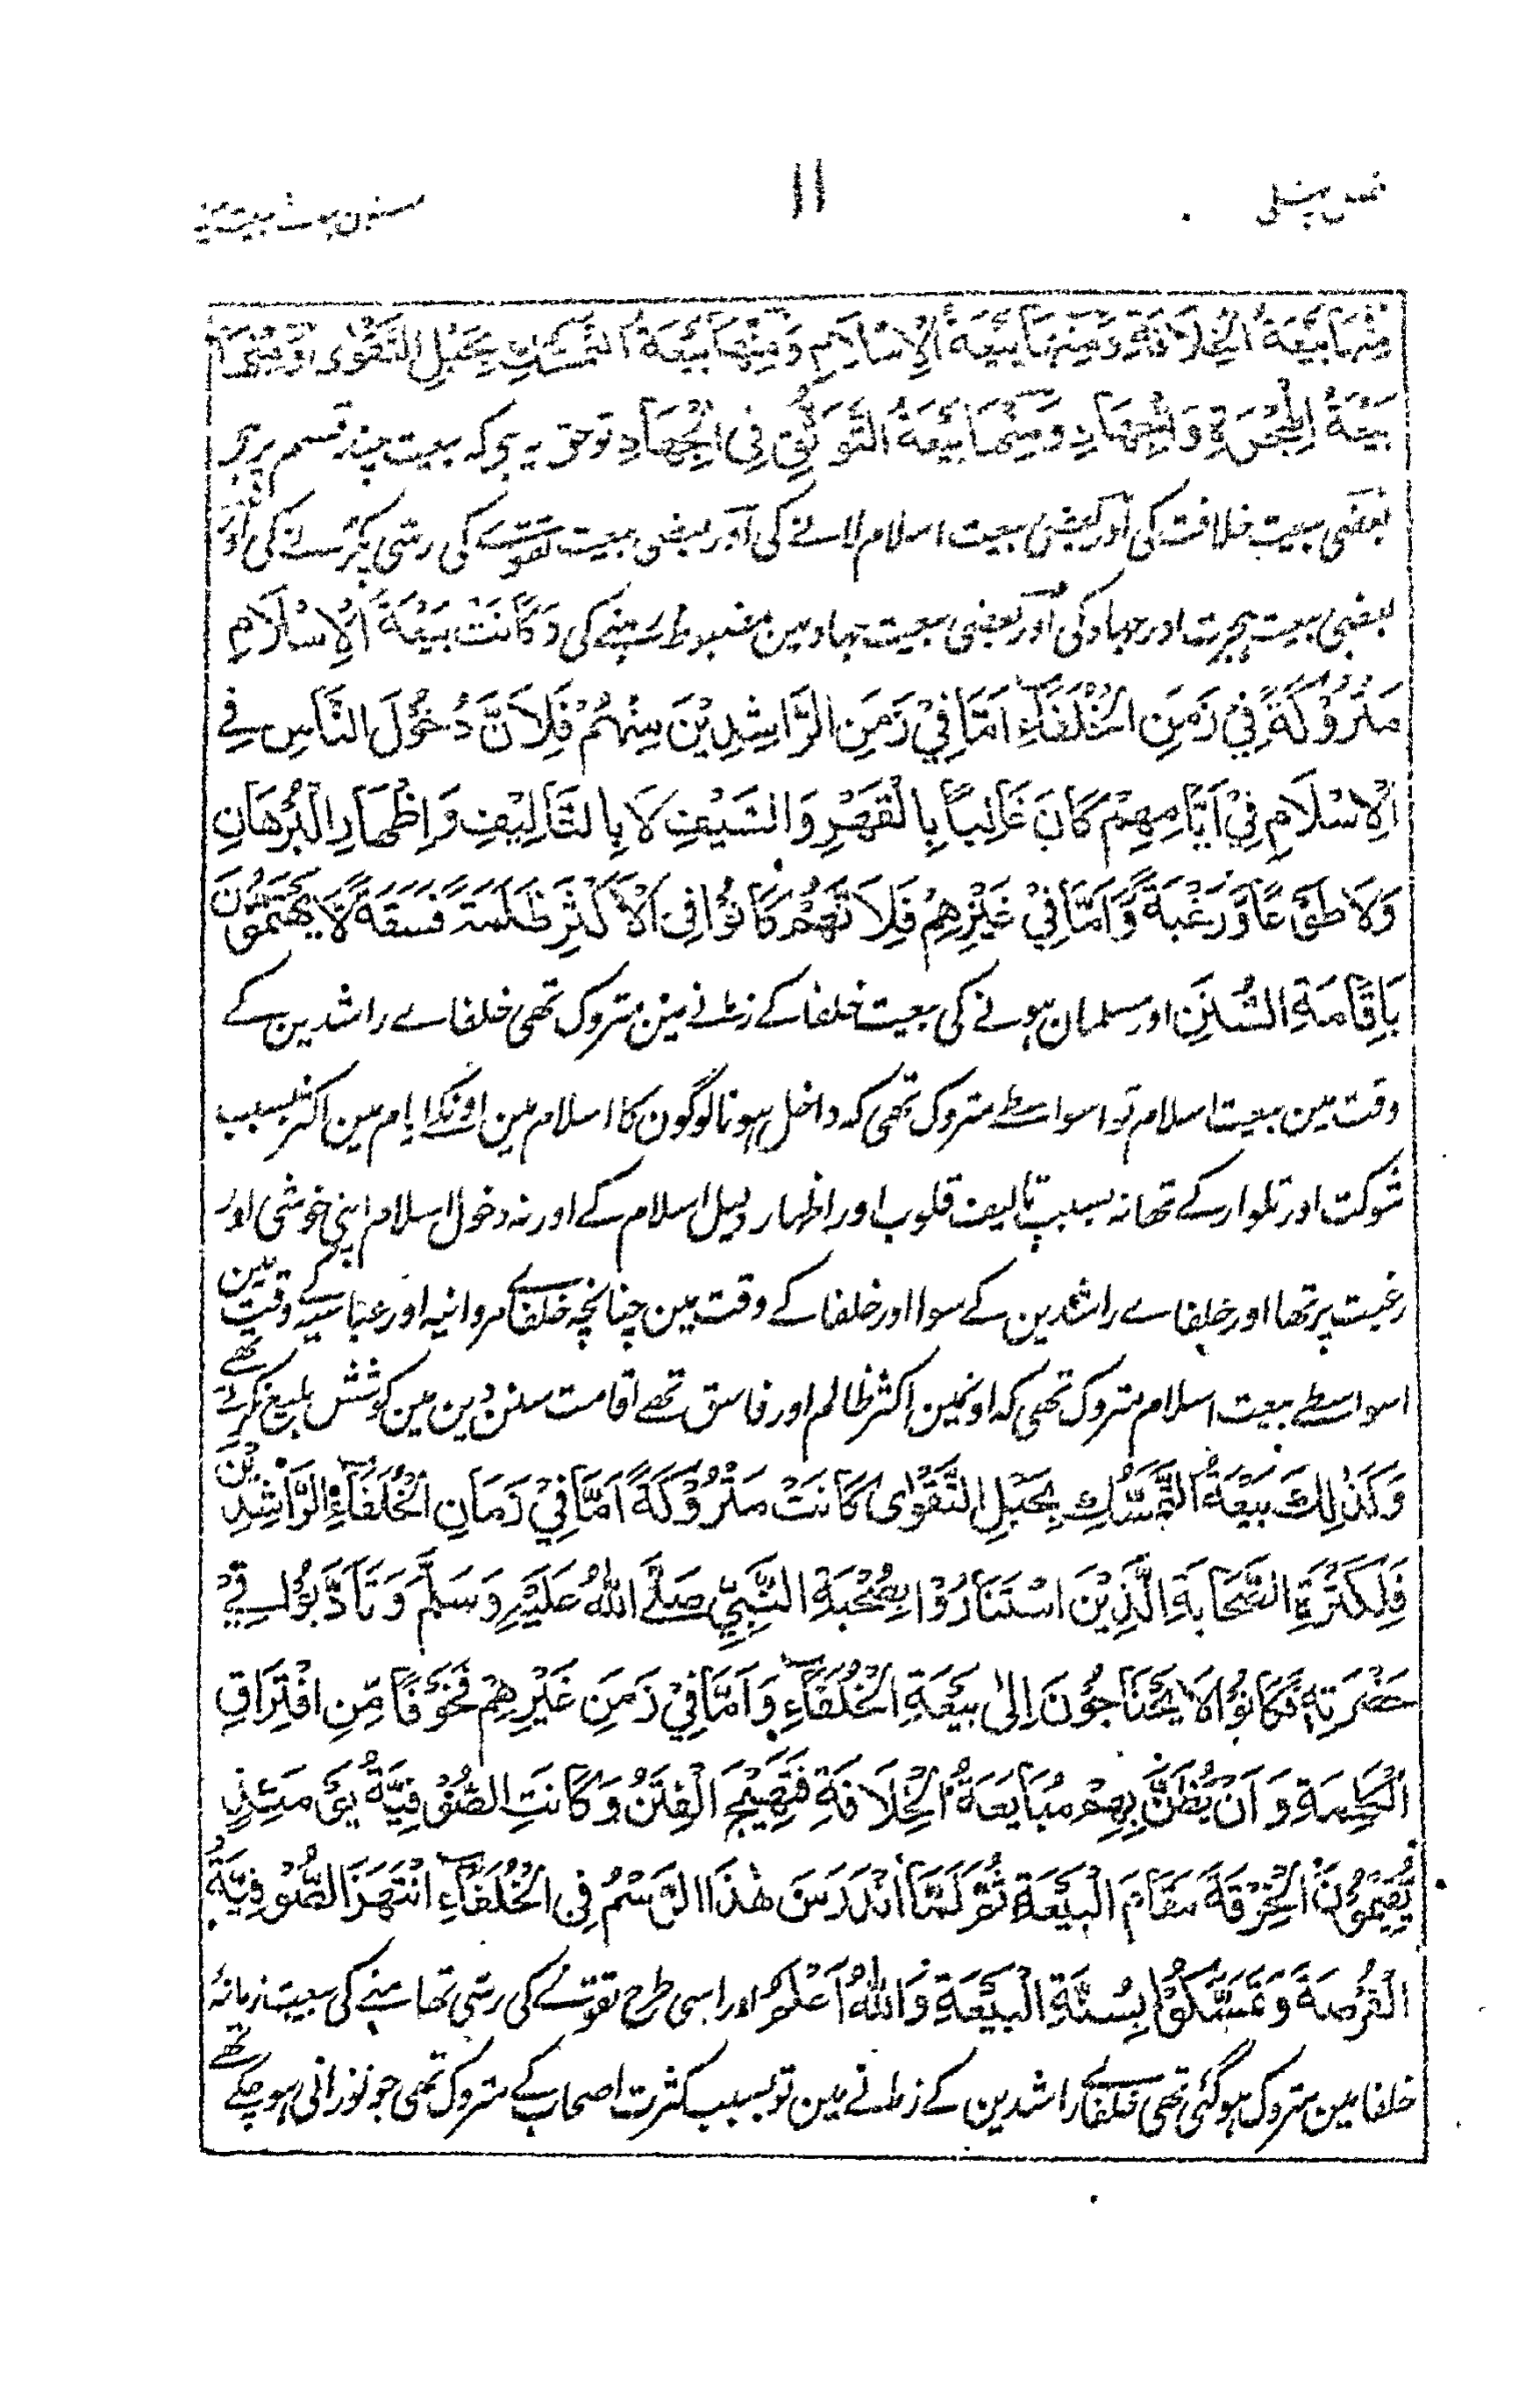 فصل پہلی
۱۱
مسنون ہونے بیعت
مِنْهَا بَيْعَةُ الْخِلَافَةِ وَمِنْهَا بَيْعَةُ الْاِسْلَامِ وَمِنْهَا بَيْعَةُ التَّمَسُّكِ بِحَبْلِ التَّقْوٰى وَمِنْهَا
بَيْعَةُ الْهِجْرَةِ وَالْجِهَادِ وَمِنْهَا بَيْعَةُ التَّوَثُّقِ فِى الْجِهَادِ تو حق یہ ہی کہ بیعت چند قسم پر ہی
بعضی بیعت خلافت کی اور بعضی بیعت اسلام لانے کی اور بعضی بیعت تقوے کی رسّی پکڑنے کی اور
بعضی بیعت ہجرت اور جہاد کی اور بعضی بیعت جہاد مین مضبوط رہنے کی وَكَانَتْ بَيْعَةُ الْاِسْلَامِ
مَتْرُوْكَةً فِيْ زَمَنِ الْخُلَفَآءِ اَمَّا فِيْ زَمَنِ الرَّاشِدِيْنَ مِنْهُمْ فَلِاَنَّ دُخُوْلَ النَّاسِ فِے
الْاِسْلَامِ فِيْ اَيَّامِهِمْ كَانَ غَالِبًا بِالْقَهْرِ وَالسَّيْفِ لَا بِالتَّأْلِيْفِ وَاِظْهَارِ الْبُرْهَانِ
وَلَا طَوْعًا وَّرَغْبَةً وَّاَمَّا فِيْ غَيْرِهِمْ فَلِاَنَّهُمْ كَانُوْا فِى الْاَكْثَرِ ظَلَمَةً فَسَقَةً لَّا يَهْتَمُّوْنَ
بِاِقَامَةِ السُّنَنِ اور مسلمان ہونے کی بیعت خلفا کے زمانے مین متروک تھی خلفاے راشدین کے
وقت مین بیعت اسلام تو اسواسطے متروک تھی کہ داخل ہونا لوگون کا اسلام مین اونکے ایام مین اکثر بسبب
شوکت اور تلوار کے تھا نہ بسبب تالیف قلوب اور اظہار دلیل اسلام کے اور نہ دخول اسلام اپنی خوشی اور
رغبت پر تھا اور خلفاے راشدین کے سوا اور خلفا کے وقت مین چنانچہ خلفاے مروانیہ اور عباسیہ کے وقت مین
اسواسطے بیعت اسلام متروک تھی کہ اونمین اکثر ظالم اور فاسق تھے اقامت سنن دین مین کوشش بلیغ نکرتے تھے
وَكَذٰلِكَ بَيْعَةُ التَّمَسُّكِ بِحَبْلِ التَّقْوٰى كَانَتْ مَتْرُوْكَةً اَمَّا فِيْ زَمَانِ الْخُلَفَآءِ الرَّاشِدِيْنَ
فَلِكَثْرَةِ الصَّحَابَةِ الَّذِيْنَ اسْتَنَارُوْا بِصُحْبَةِ النَّبِيِّ صَلَّے اللهُ عَلَيْهِ وَسَلَّمَ وَتَأَدَّبُوْا فِيْ
حَضْرَتِهٖ فَكَانُوْا لَا يَحْتَاجُوْنَ اِلٰى بَيْعَةِ الْخُلَفَآءِ وَاَمَّا فِيْ زَمَنِ غَيْرِهِمْ فَخَوْفًا مِّنِ افْتِرَاقِ
الْكَلِمَةِ وَاَنْ يُّظَنَّ بِهِمْ مُبَايَعَةُ الْخِلَافَةِ فَتَهِيْجَ الْفِتَنُ وَكَانَتِ الصُّوْفِيَّةُ يَوْمَئِذٍ
يُّقِيْمُوْنَ الْخِرْقَةَ مَقَامَ الْبَيْعَةِ ثُمَّ لَمَّا انْدَرَسَ هٰذَا الرَّسْمُ فِى الْخُلَفَآءِ انْتَهَزَ الصُّوْفِيَّةُ
الْفُرْصَةَ وَتَمَسَّكُوْا بِسُنَّةِ الْبَيْعَةِ وَاللهُ اَعْلَمُ اور اسی طرح تقوے کی رسّی تھامنے کی بیعت زمانۂ
خلفا مین متروک ہو گئی تھی خلفاے راشدین کے زمانے مین تو بسبب کثرت اصحاب کے متروک تھی جو نورانی ہو چکے تھے